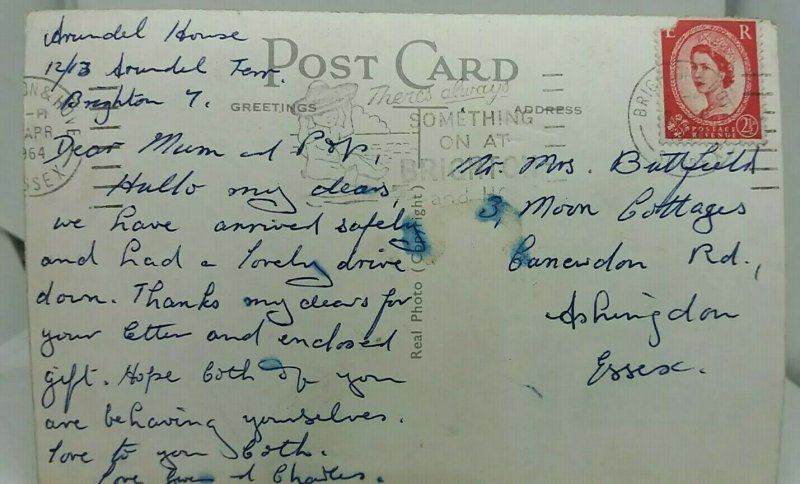 Arundel House
12/13 Arundel Terr.
Brighton 7.
POST CARD
GREETINGS
ADDRESS
There's always
SOMETHING
ON AT
BRIGHTON
and
APR
1964
SSEX
BRIG
E R
POSTAGE
REVENUE
2½
Dear Mum and Pop,
Hullo my dears,
we have arrived safely
and had a lovely drive
down. Thanks my dears for
your letter and enclosed
gift. Hope both of you
are behaving yourselves.
Love to you both.
Love and Charles.
Real Photo (Copyright)
Mr. Mrs. Buttfield
3, Moon Cottages
Canewdon Rd.,
Ashingdon
Essex.